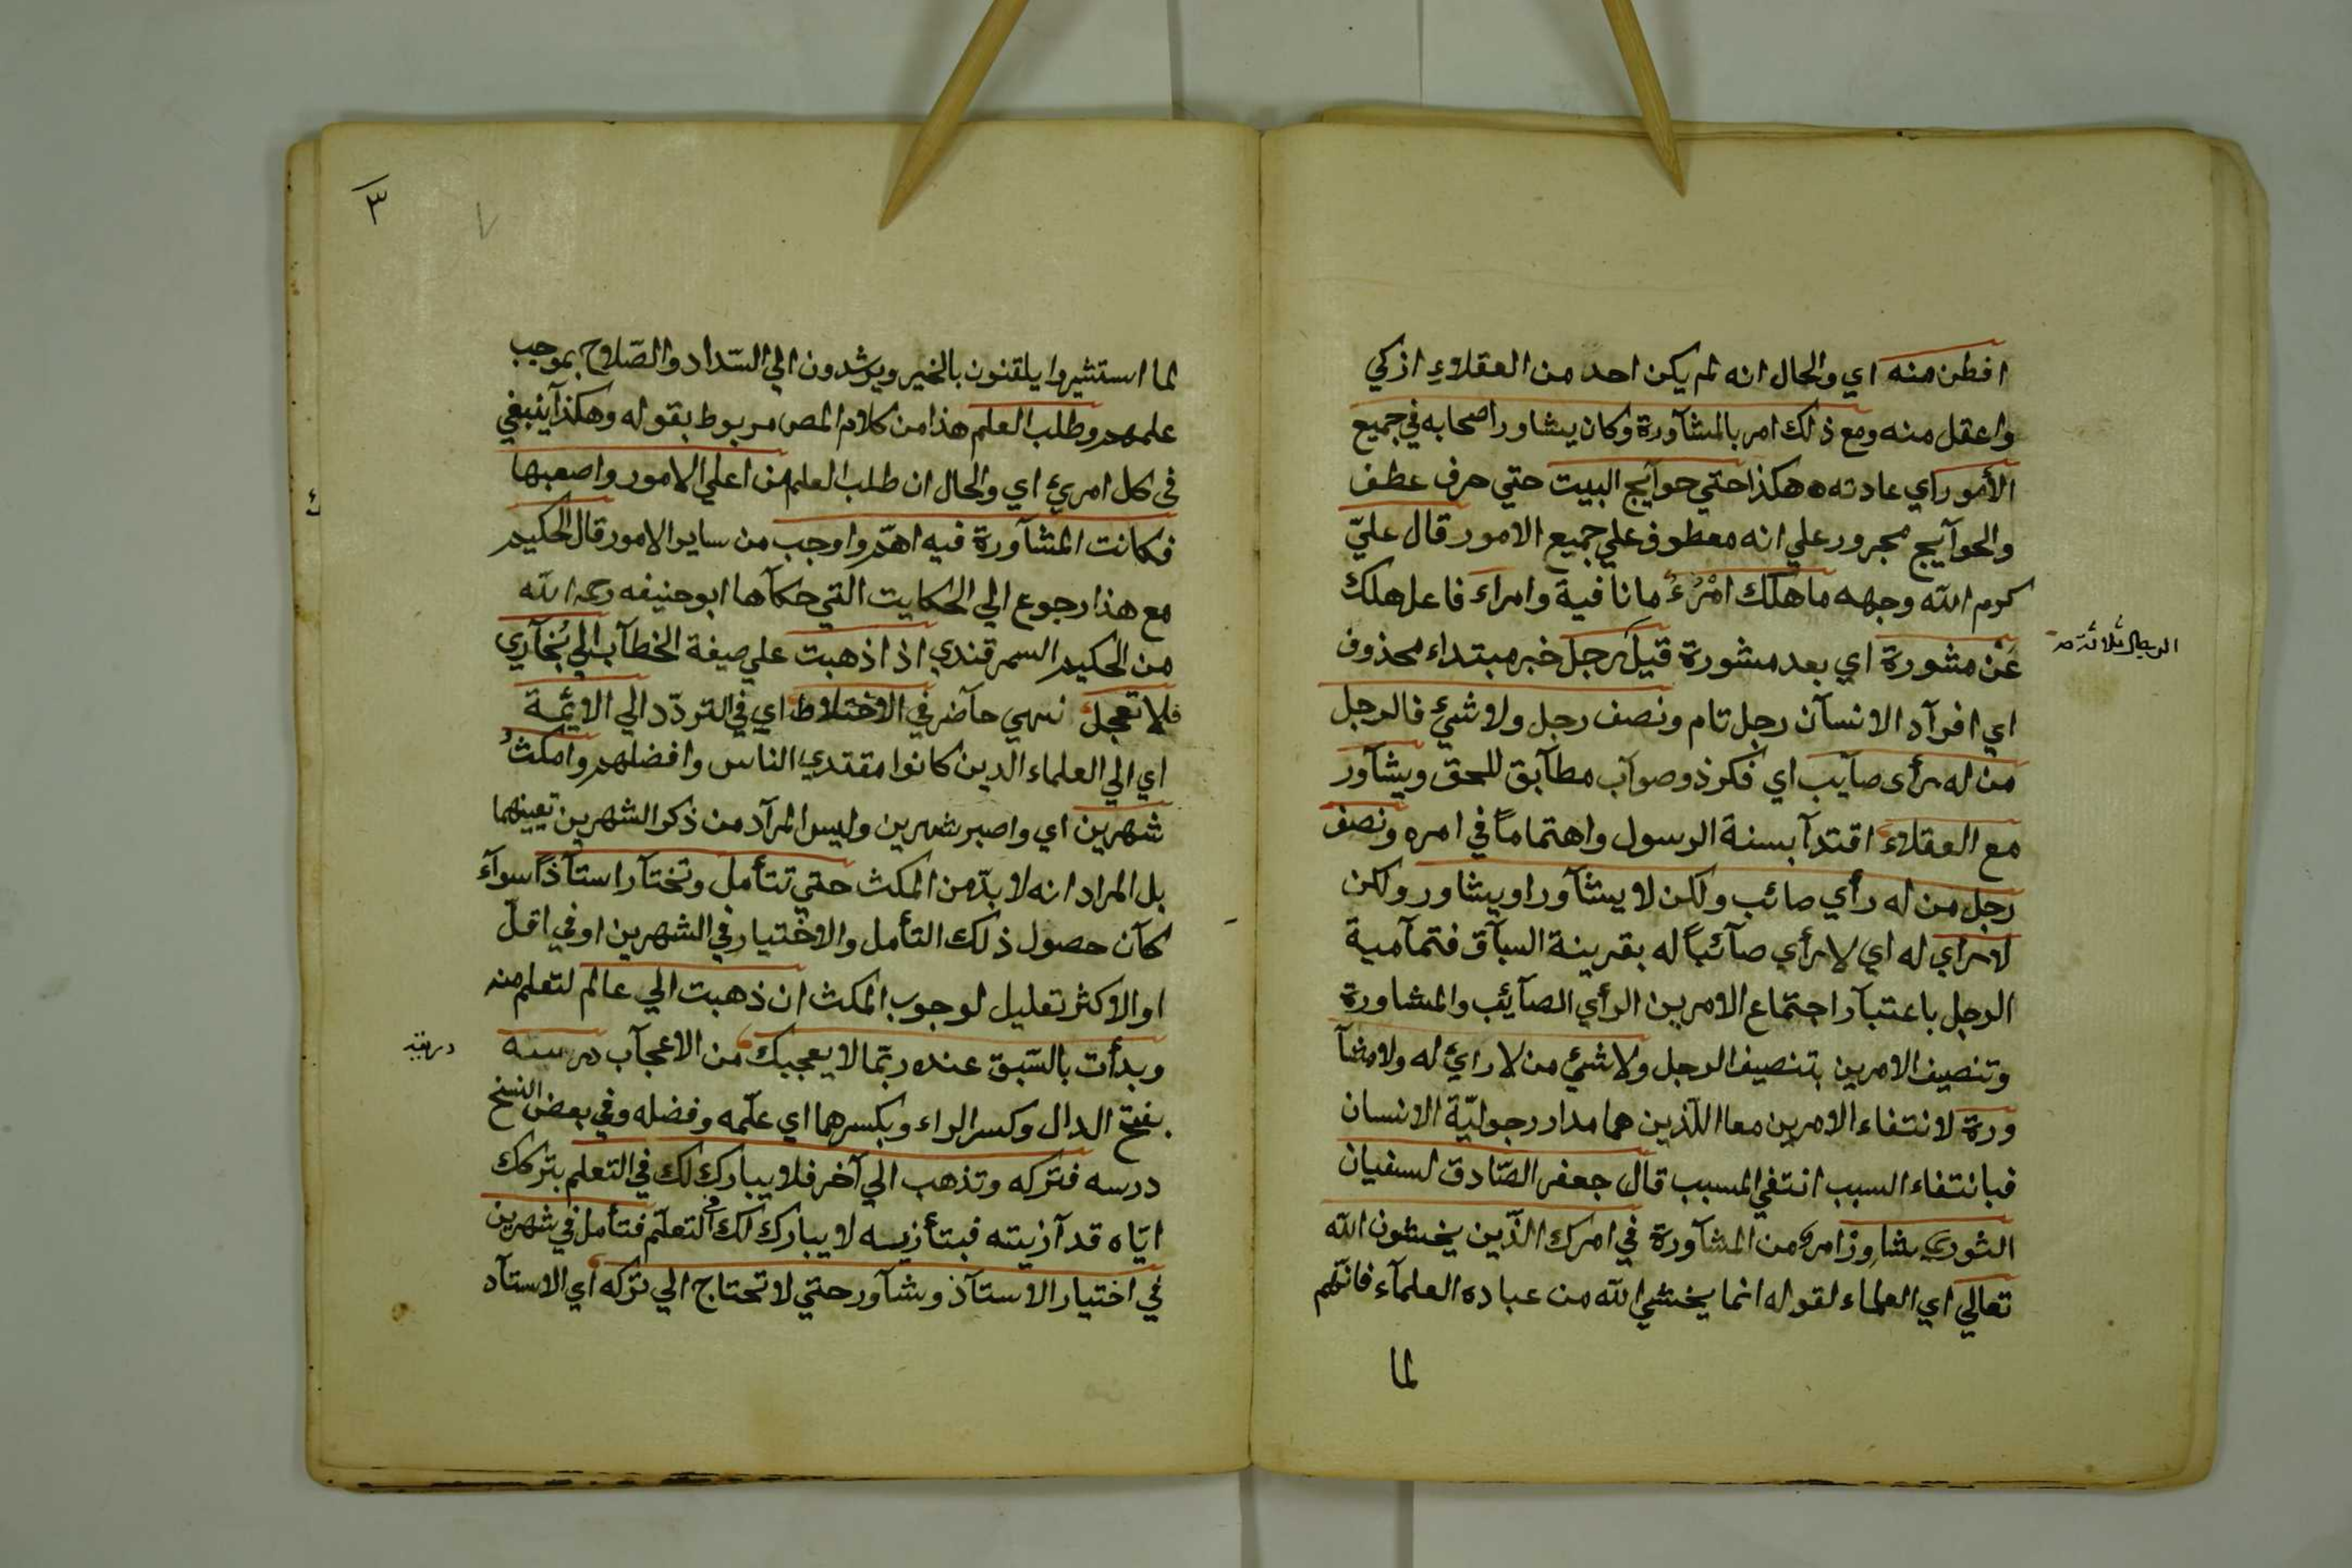 افطن منه اي والحال انه لم يكن احد من العقلاءِ ازكي
واعقل منه ومع ذلك امر بالمشآورة وكان يشاور اصحابه في جميع
الأمور اي عادته هكذا حتي حوآيج البيت حتي حرف عطف
والحوآيج مجرور علي انه معطوف علي جميع الامور قال عليّ
كرم الله وجهه ما هلك امْرُءٌ ما نافية وامراءَ فاعل هلك
عَنْ مشورة اي بعد مشورة قيل رجل خبر مبتداء محذوف
الرجال ثلاثة
اي افرآد الانسآن رجل تام ونصف رجل ولا شيئ فالرجل
من له رأى صآيب اي فكر ذو صوآب مطآبق للحق ويشآور
مع العقلاء اقتدآ بسنة الرسول واهتماماً في امره ونصف
رجل من له رأي صائب ولكن لا يشآور او يشاور ولكن
لا رأي له اي لا رأي صآئباً له بقرينة السبآق فتمآمية
الرجل باعتبآر اجتماع الامرين الرأي الصآئب والمشاورة
وتنصيف الامرين بتنصيف الرجل ولا شيئ من لا رائ له ولا مشآ
ورة لانتفاء الامرين معا اللذين هما مدار رجوليّة الانسان
فبانتفاء السبب انتفي المسبب قال جعفر الصّادق لسفيان
الثوري شاوِرْ امر من المشآورة في امرك الذّين يخشون الله
تعالي اي العلماء لقوله انما يخشي الله من عباده العلمآء فانّهم
لما
٣
لما استشيروا يلقنون بالخير ويرشدون الي السّداد والصّلاح بموجب
علمهم وطلب العلم هذا من كلام المص مربوط بقوله وهكذا ينبغي
فى كل امرئ اي والحال ان طلب العلم من اعلي الامور واصعبها
فكانت المشآورة فيه اهمّ واوجب من ساير الامور قال الحكيم
مع هذا رجوع الي الحكايت التي حكآها ابو حنيفه رحمه الله
من الحكيم السمرقندي اذا ذهبت علي صيغة الخطآب الي بُخآري
فلا تعجل نهي حآضر في الاختلاط اي في التردّد الي الائمة
اي الي العلماء الدين كانوا مقتدي الناس وافضلهم وامكثْ
شهرين اي واصبر شهرين وليس المرآد من ذكر الشهرين تعيينهما
بل المراد انه لا بدّ من المكث حتي تتأمل وتختآر استآذاً سوآء
كآن حصول ذلك التأمل والاختيار في الشهرين او في اقلّ
او الاكثر تعليل لوجوب المكث ان ذهبت الي عالم لتعلم منه
وبدأت بالسّبق عنده ربّما لا يعجبك من الاعجآب درسه
بفتح الدال وكسر الراء وبكسرهما اي علّمه وفضله وفي بعض النسخ
درسه فتتركه وتذهب الي آخر فلا يبارك لك في التعلم بتركك
ايّاه قد آزيته فبتأزيه لا يبارك لك في التعلّم فتأمل في شهرين
في اختيار الاستآذ وشآور حتي لا تحتاج الي تركه اي الاستآد